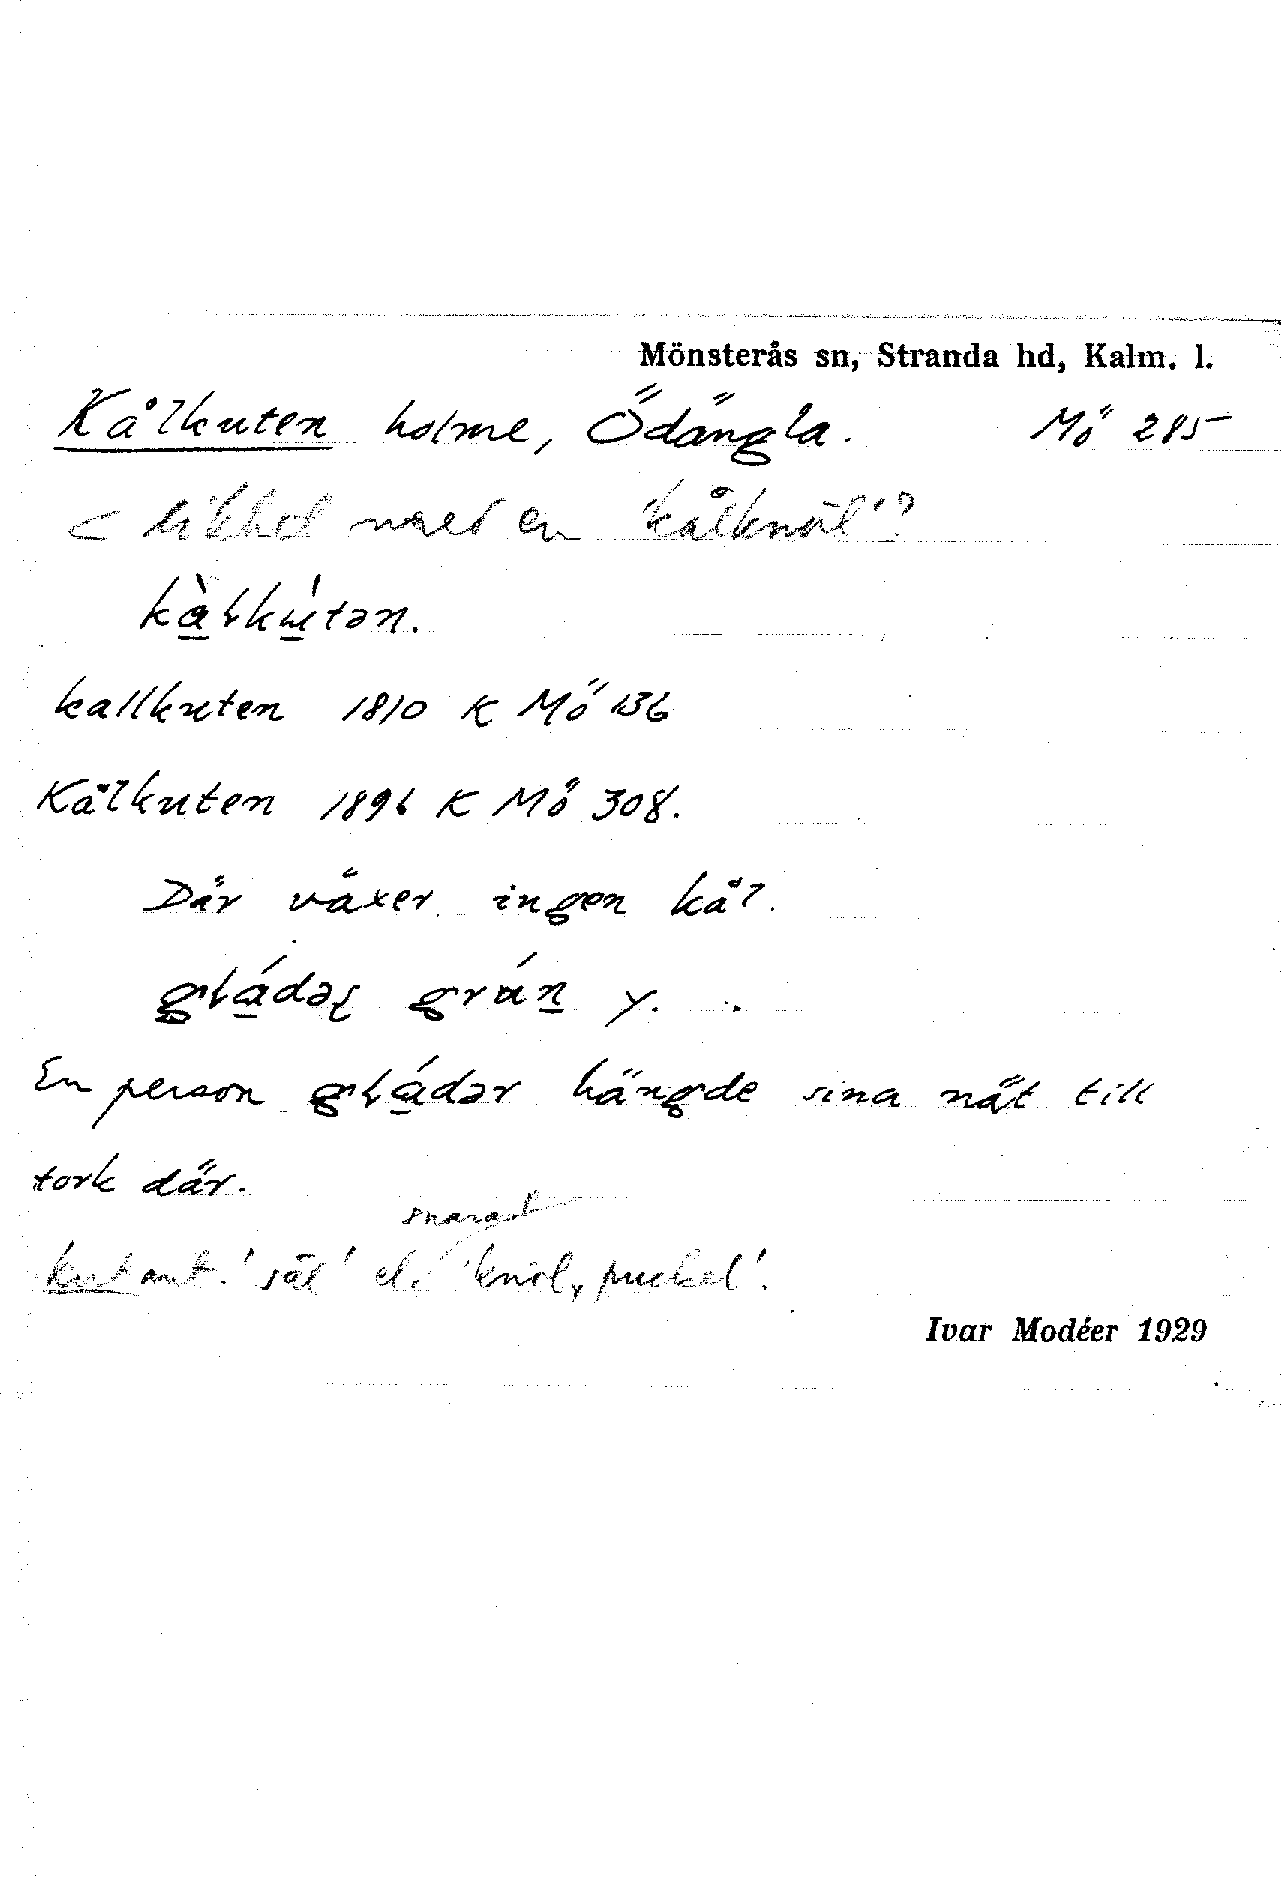 Mönsterås sn, Stranda hd, Kalm. l.
Kålkuten holme, Ödängla. Mö 285
< likhet med en 'kålknöl'?
kàƚkútən.
kallkuten 1810 K Mö 136
Kålkuten 1896 K Mö 308.
Där växer ingen kål.
grún y.
En person hängde sina nät till
tork där.
snarast
kut ant. 'säl' el. 'knöl, puckel'.
Ivar Modéer 1929